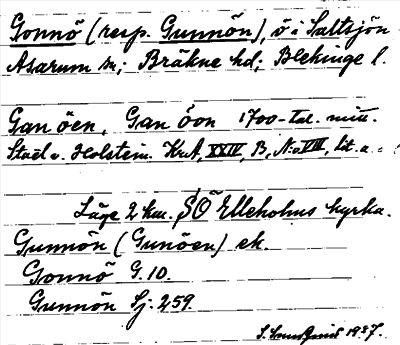 Gonnö (resp. Gunnön), ö i Saltsjön
Asarum sn; Bräkne hd; Blekinge l.
Gan öen, Gan öon 1700-tal. mitt.
Staël v. Holstein. KrA, XXIV, B, No VIII, lit. a.
Läge 2 km. SÖ Elleholms kyrka.
Gunnön (Gunöen) ek.
Gonnö G. 10.
Gunnön Sj: 259.
1937.